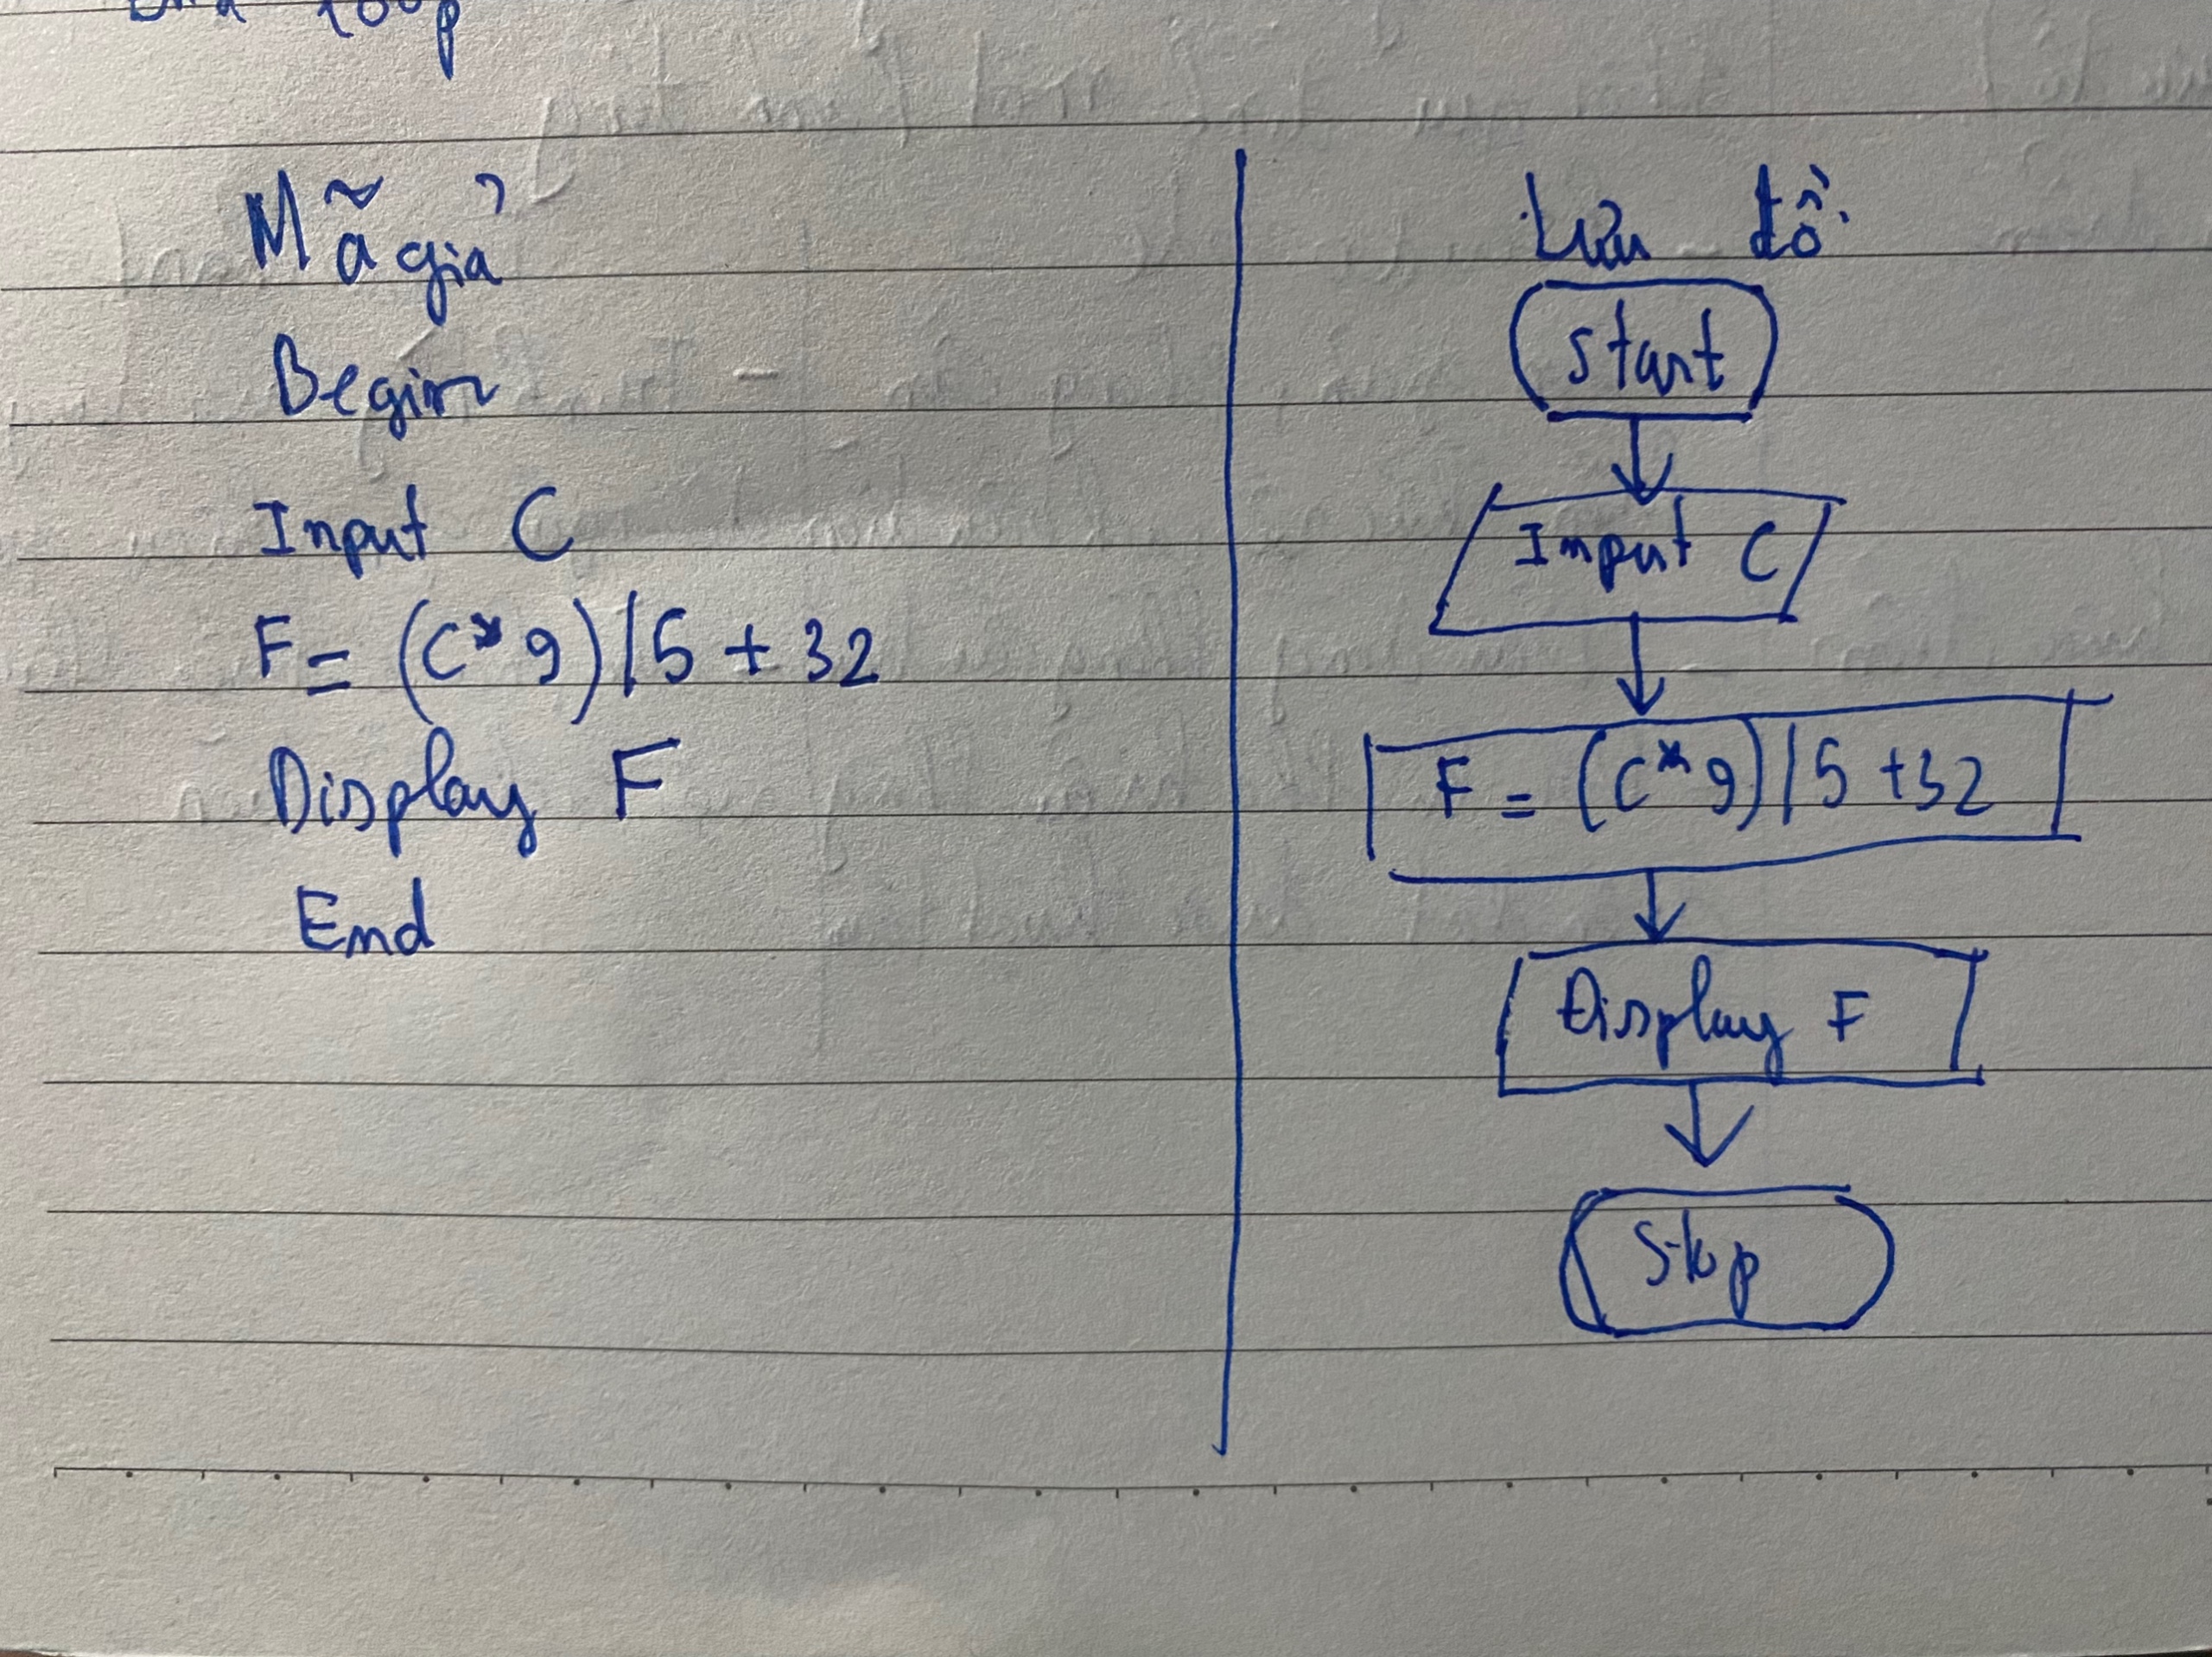 End loop
Mã giả
Begin
Input C
F = (C*9)/5 + 32
Display F
End
Lưu đồ
Start
Input C
F = (C*9)/5 + 32
Display F
Stop